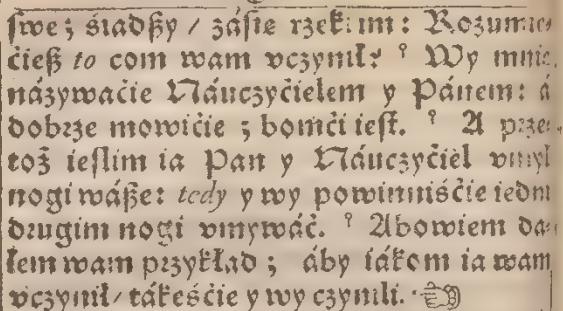 swe; śiadßy / záśie rzekł im: Rozumie
ćieß to com wam vczynił? Wy mnie
názywaćie Náuczyćielem y Pánem: á
dobrze mowićie; bomći iest. A prze
toż ieslim ia Pan y Náuczyćiel vmył
nogi wáße: tedy y wy powinniśćie iedni
drugim nogi vmywáć. Abowiem da
łem wam przykład; áby iákom ia wam
vczynił / tákeśćie y wy czynili. ☜